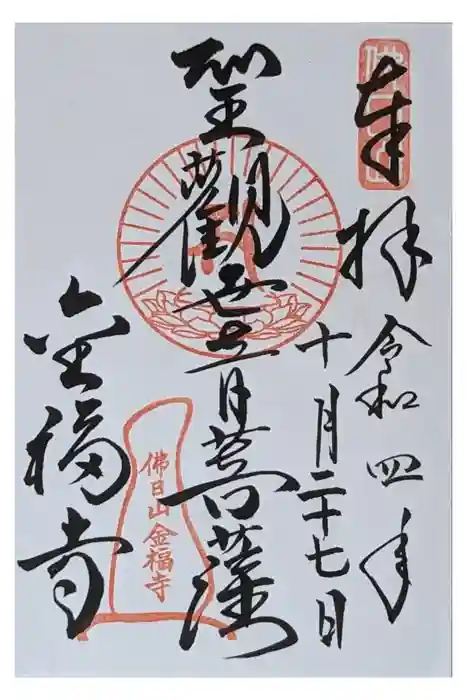 奉拝
令和四年
十月二十七日
聖觀世音菩薩
佛日山金福寺
金福寺